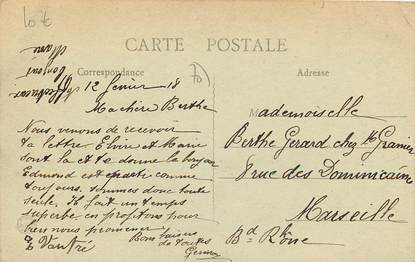 10 €
CARTE POSTALE
Correspondance
Adresse
70
Marie
bonjour
12 février 18
Ma chère Berthe
Nous venons de recevoir
ta lettre. Elvire et Marie
sont là et te donne le bonjour
Edmond est comme
toujours. sommes donc toute
seule. Il fait un temps
superbe en profitons pour
bien nous promener
Bons baisers
de toutes
Mademoiselle
Berthe Gerard chez Me Granier
8 rue des Dominicaine
Marseille
Bd Rhône